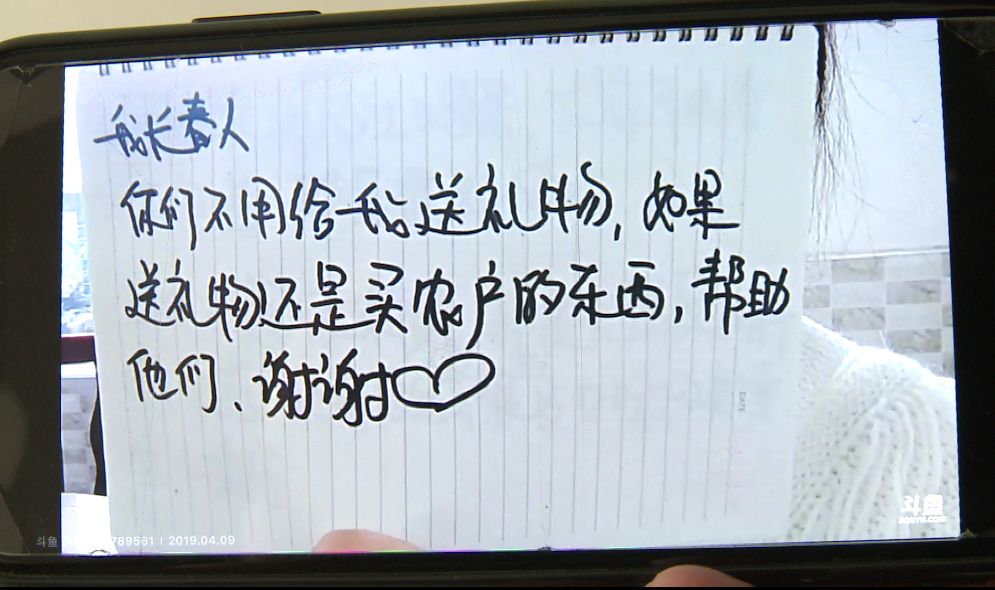 我长春人
你们不用给我送礼物,如果
送礼物还是买农户的东西,帮助
他们、谢谢♡
DATE
斗鱼
DOUYU.COM
斗鱼 789561 | 2019.04.09